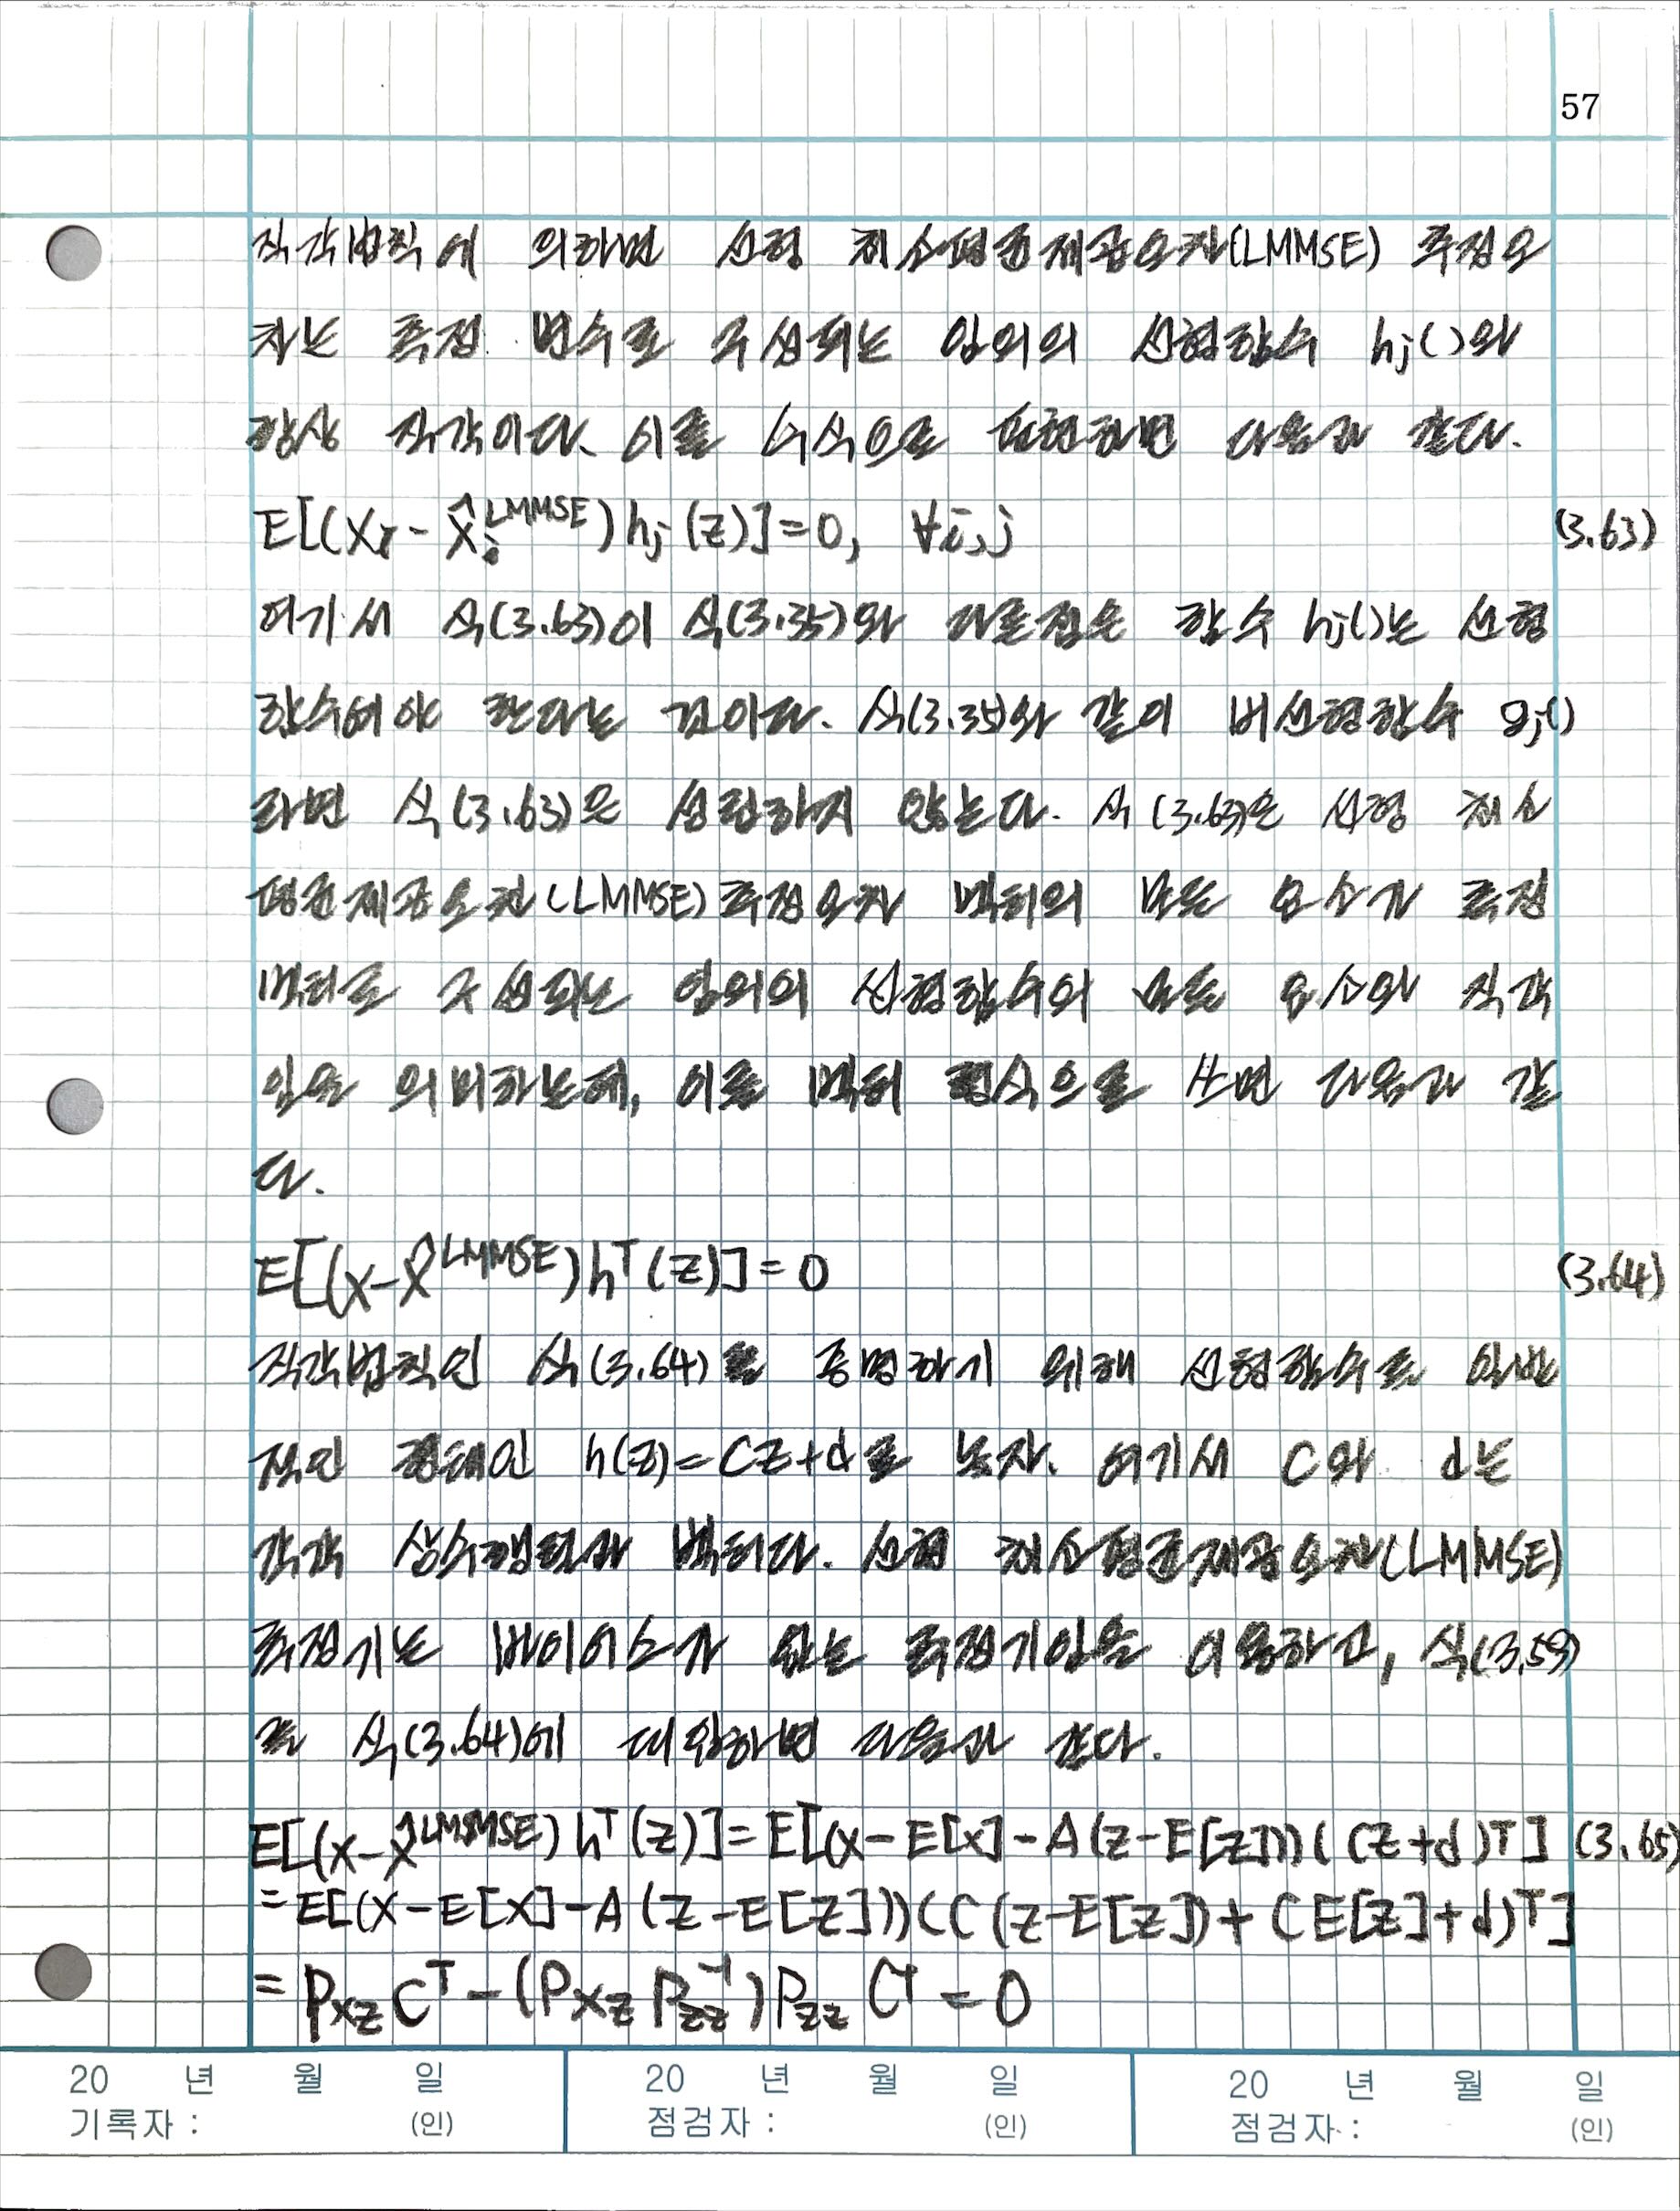 57
직각법칙에 의하면 선형 최소평균제곱오차(LMMSE) 추정오
차는 측정 변수로 구성되는 임의의 선형함수 hj()와
항상 직각이다. 이를 수식으로 표현하면 다음과 같다.
E[(xi-x̂i^LMMSE)hj(z)]=0, ∀i,j (3.63)
여기서 식(3.63)이 식(3.35)와 다른점은 함수 hj()는 선형
함수여야 한다는 것이다. 식(3.35)와 같이 비선형함수 gj()
라면 식(3.63)은 성립하지 않는다. 식(3.63)은 선형 최소
평균제곱오차(LMMSE) 추정오차 벡터의 모든 요소가 측정
벡터로 구성되는 임의의 선형함수의 모든 요소와 직각
임을 의미하는데, 이를 벡터 형식으로 쓰면 다음과 같
다.
E[(x-x̂^LMMSE)h^T(z)]=0 (3.64)
직각법칙인 식(3.64)를 증명하기 위해 선형함수를 일반
적인 형태인 h(z)=Cz+d로 놓자. 여기서 C와 d는
각각 상수행렬과 벡터다. 선형 최소평균제곱오차(LMMSE)
추정기는 바이어스가 없는 추정기임을 이용하고, 식(3.59)
를 식(3.64)에 대입하면 다음과 같다.
E[(x-x̂^LMMSE)h^T(z)]=E[(x-E[x]-A(z-E[z]))(Cz+d)^T] (3.65)
=E[(x-E[x]-A(z-E[z]))(C(z-E[z])+CE[z]+d)^T]
=Pxz C^T-(Pxz Pzz^-1)Pzz C^T=0
20 년 월 일 20 년 월 일 20 년 월 일
기록자 : (인) 점검자 : (인) 점검자 : (인)